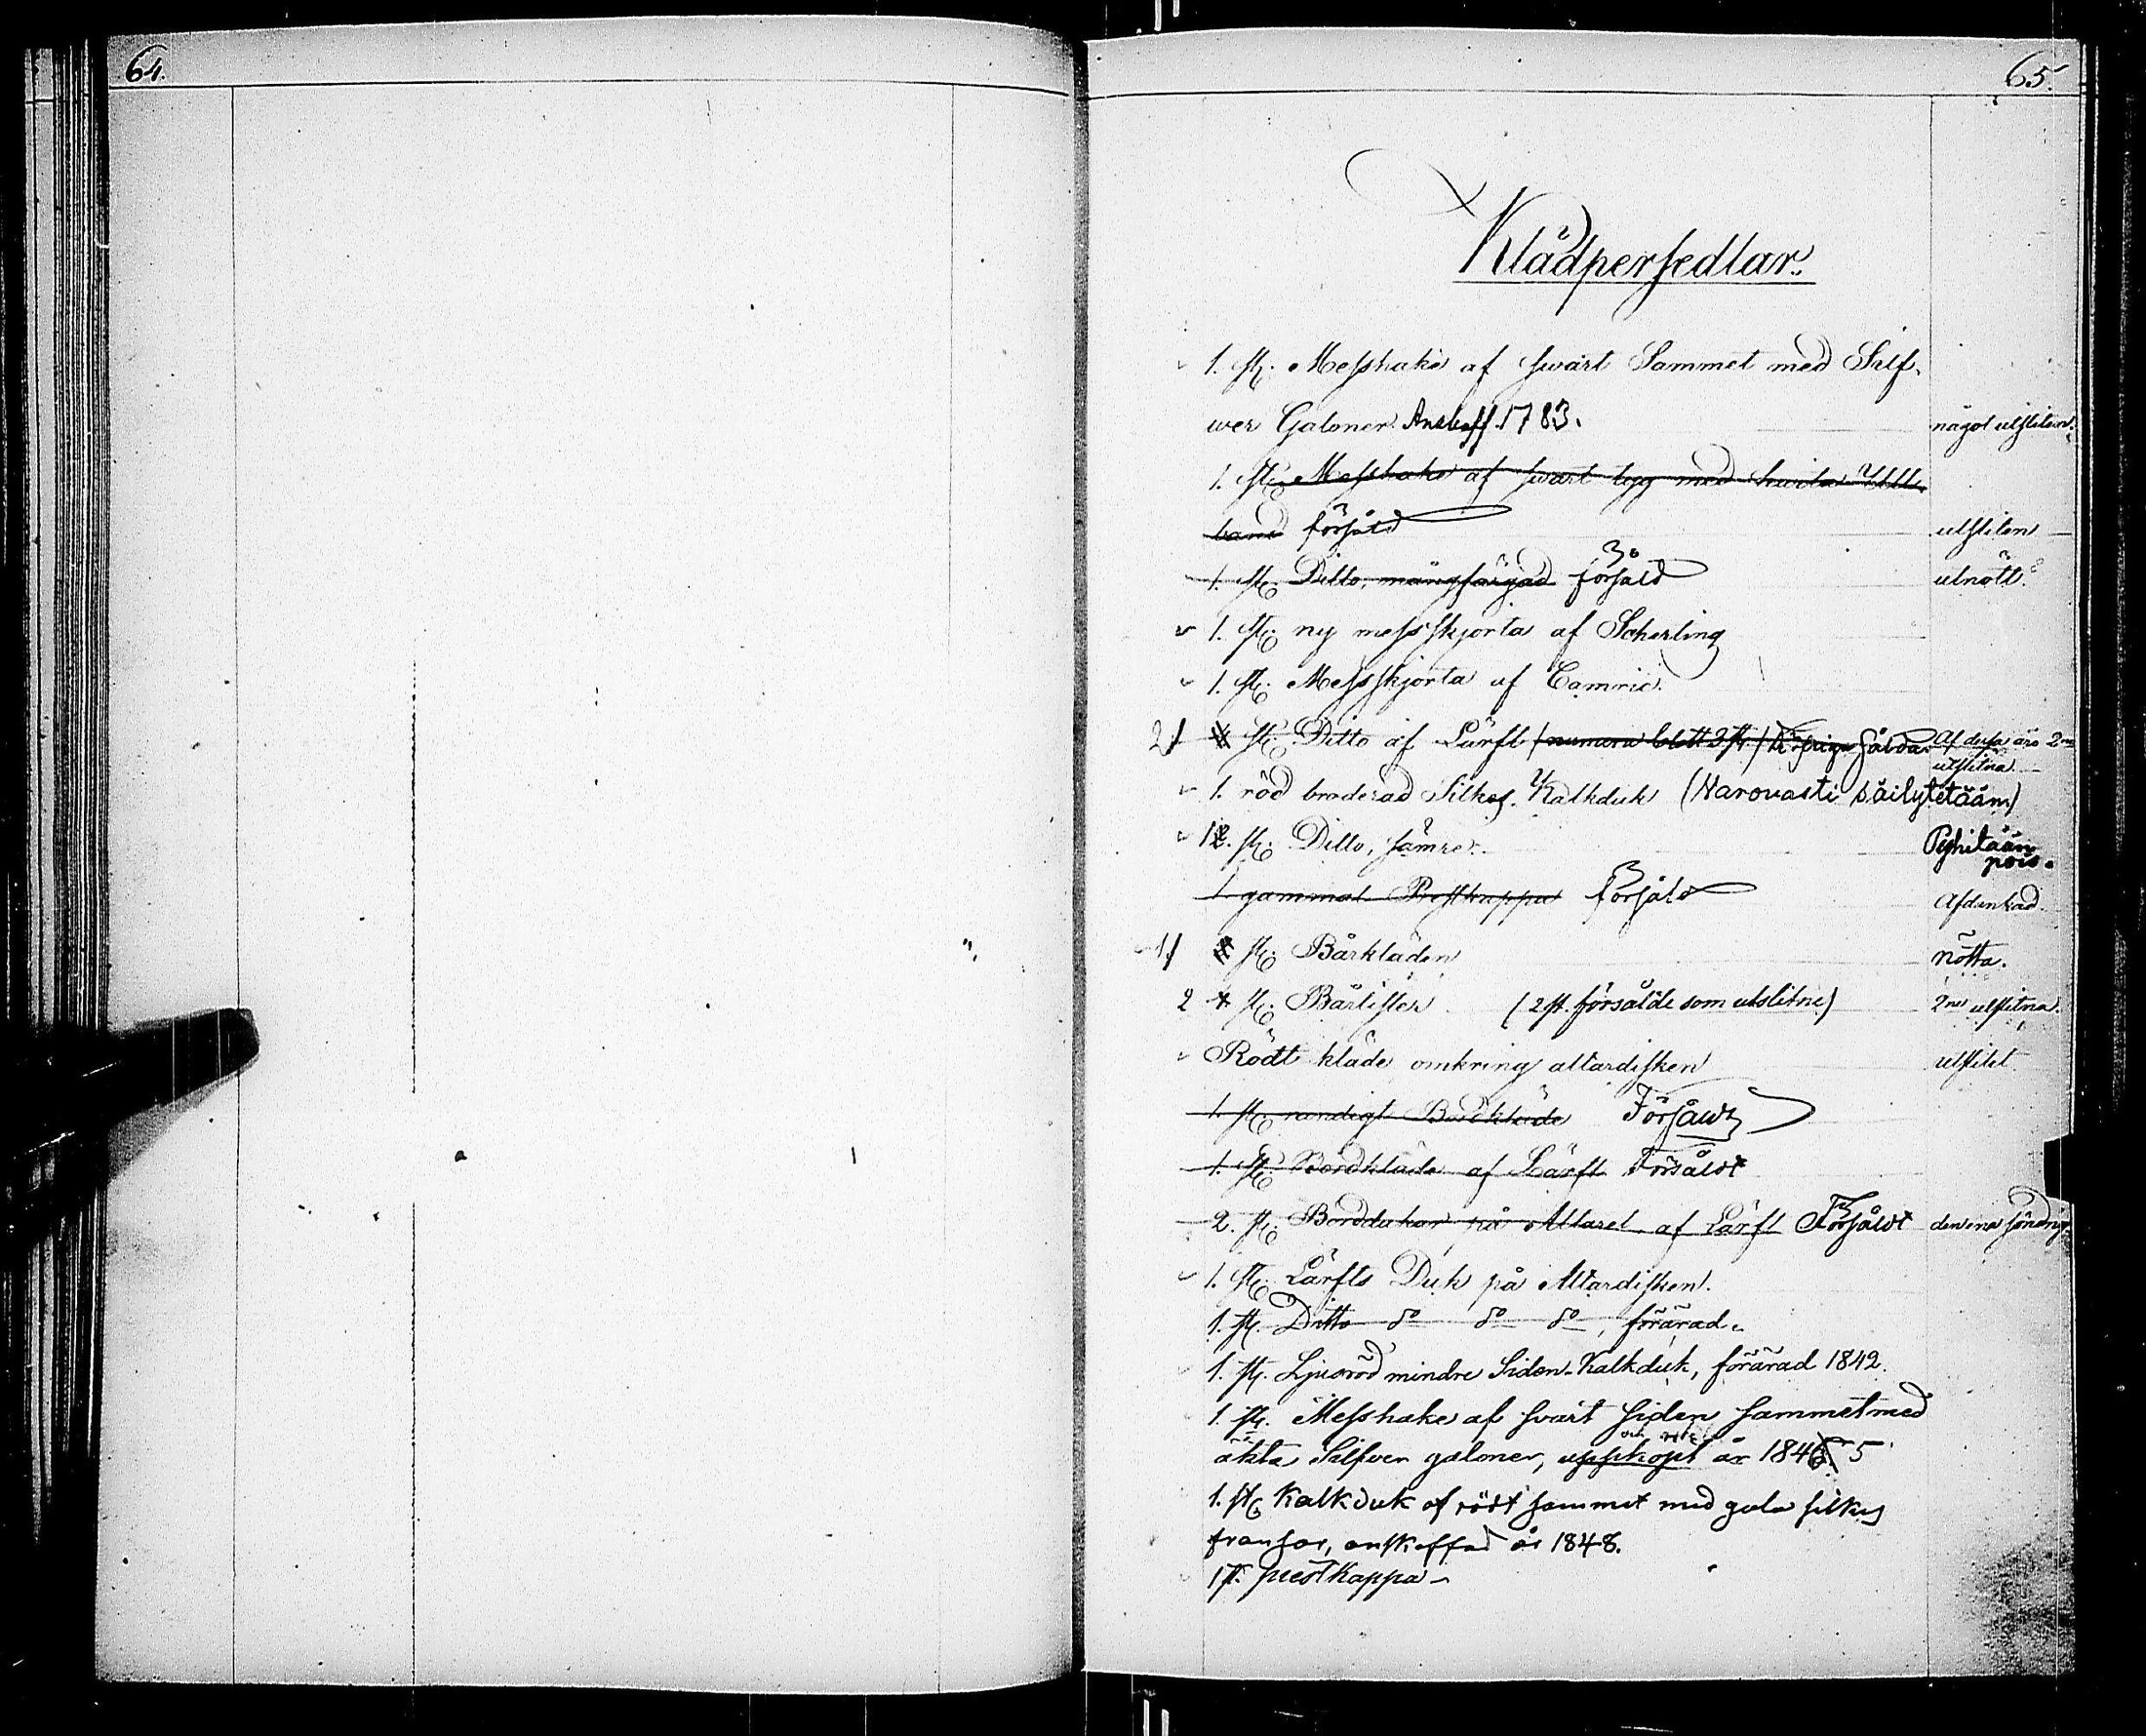 64.
65.
Klädpersedlar.
1. st. Messhake af swart Sammet med Silf-
wer Galoner. Anskaff. 1783. något utsliten.
1. st. Messhake af swart tyg med hwita
band försåld utsliten
1. st. Ditto, mångfärgad försåld utnött.
1. st. ny messskjorta af Scherting
1. st. Messskjorta af Camric.
2 st. Ditto af Lärft (numera blott 3 st.) Af dessa äro 2ne
utslitna.
1. röd broderad Silkes-Kalkduk (Harovasti säilytetään)
12. st. Ditto, sämre. Pyhitään
pois.
1 gammal Prestkappa försåld Afdankad.
1 st. Bårkläden nötta.
2 4 st. Bårlister (2 st. försålde som utslitne) 2ne utslitna.
Rödt kläde omkring altardisken utslitet
1. st. randigt Bordkläde Försåldt
1. st. Bordkläde af Lärft Försåldt
2. st. Borddukar på Altaret af Lärft Försåldt den ena söndrig
1. st. Lärfts Duk på Altardisken.
1. st. Ditto do do do, förärad.
1. st. Ljusröd mindre Siden-Kalkduk, förärad 1842.
1. st. Messhake af svart siden sammet med
äkta Silfver galoner, uppköpt år 1846 5
1. st. Kalkduk af rödt sammet med gula silkes
fransar, anskaffad år 1848.
1 st. prestkappa